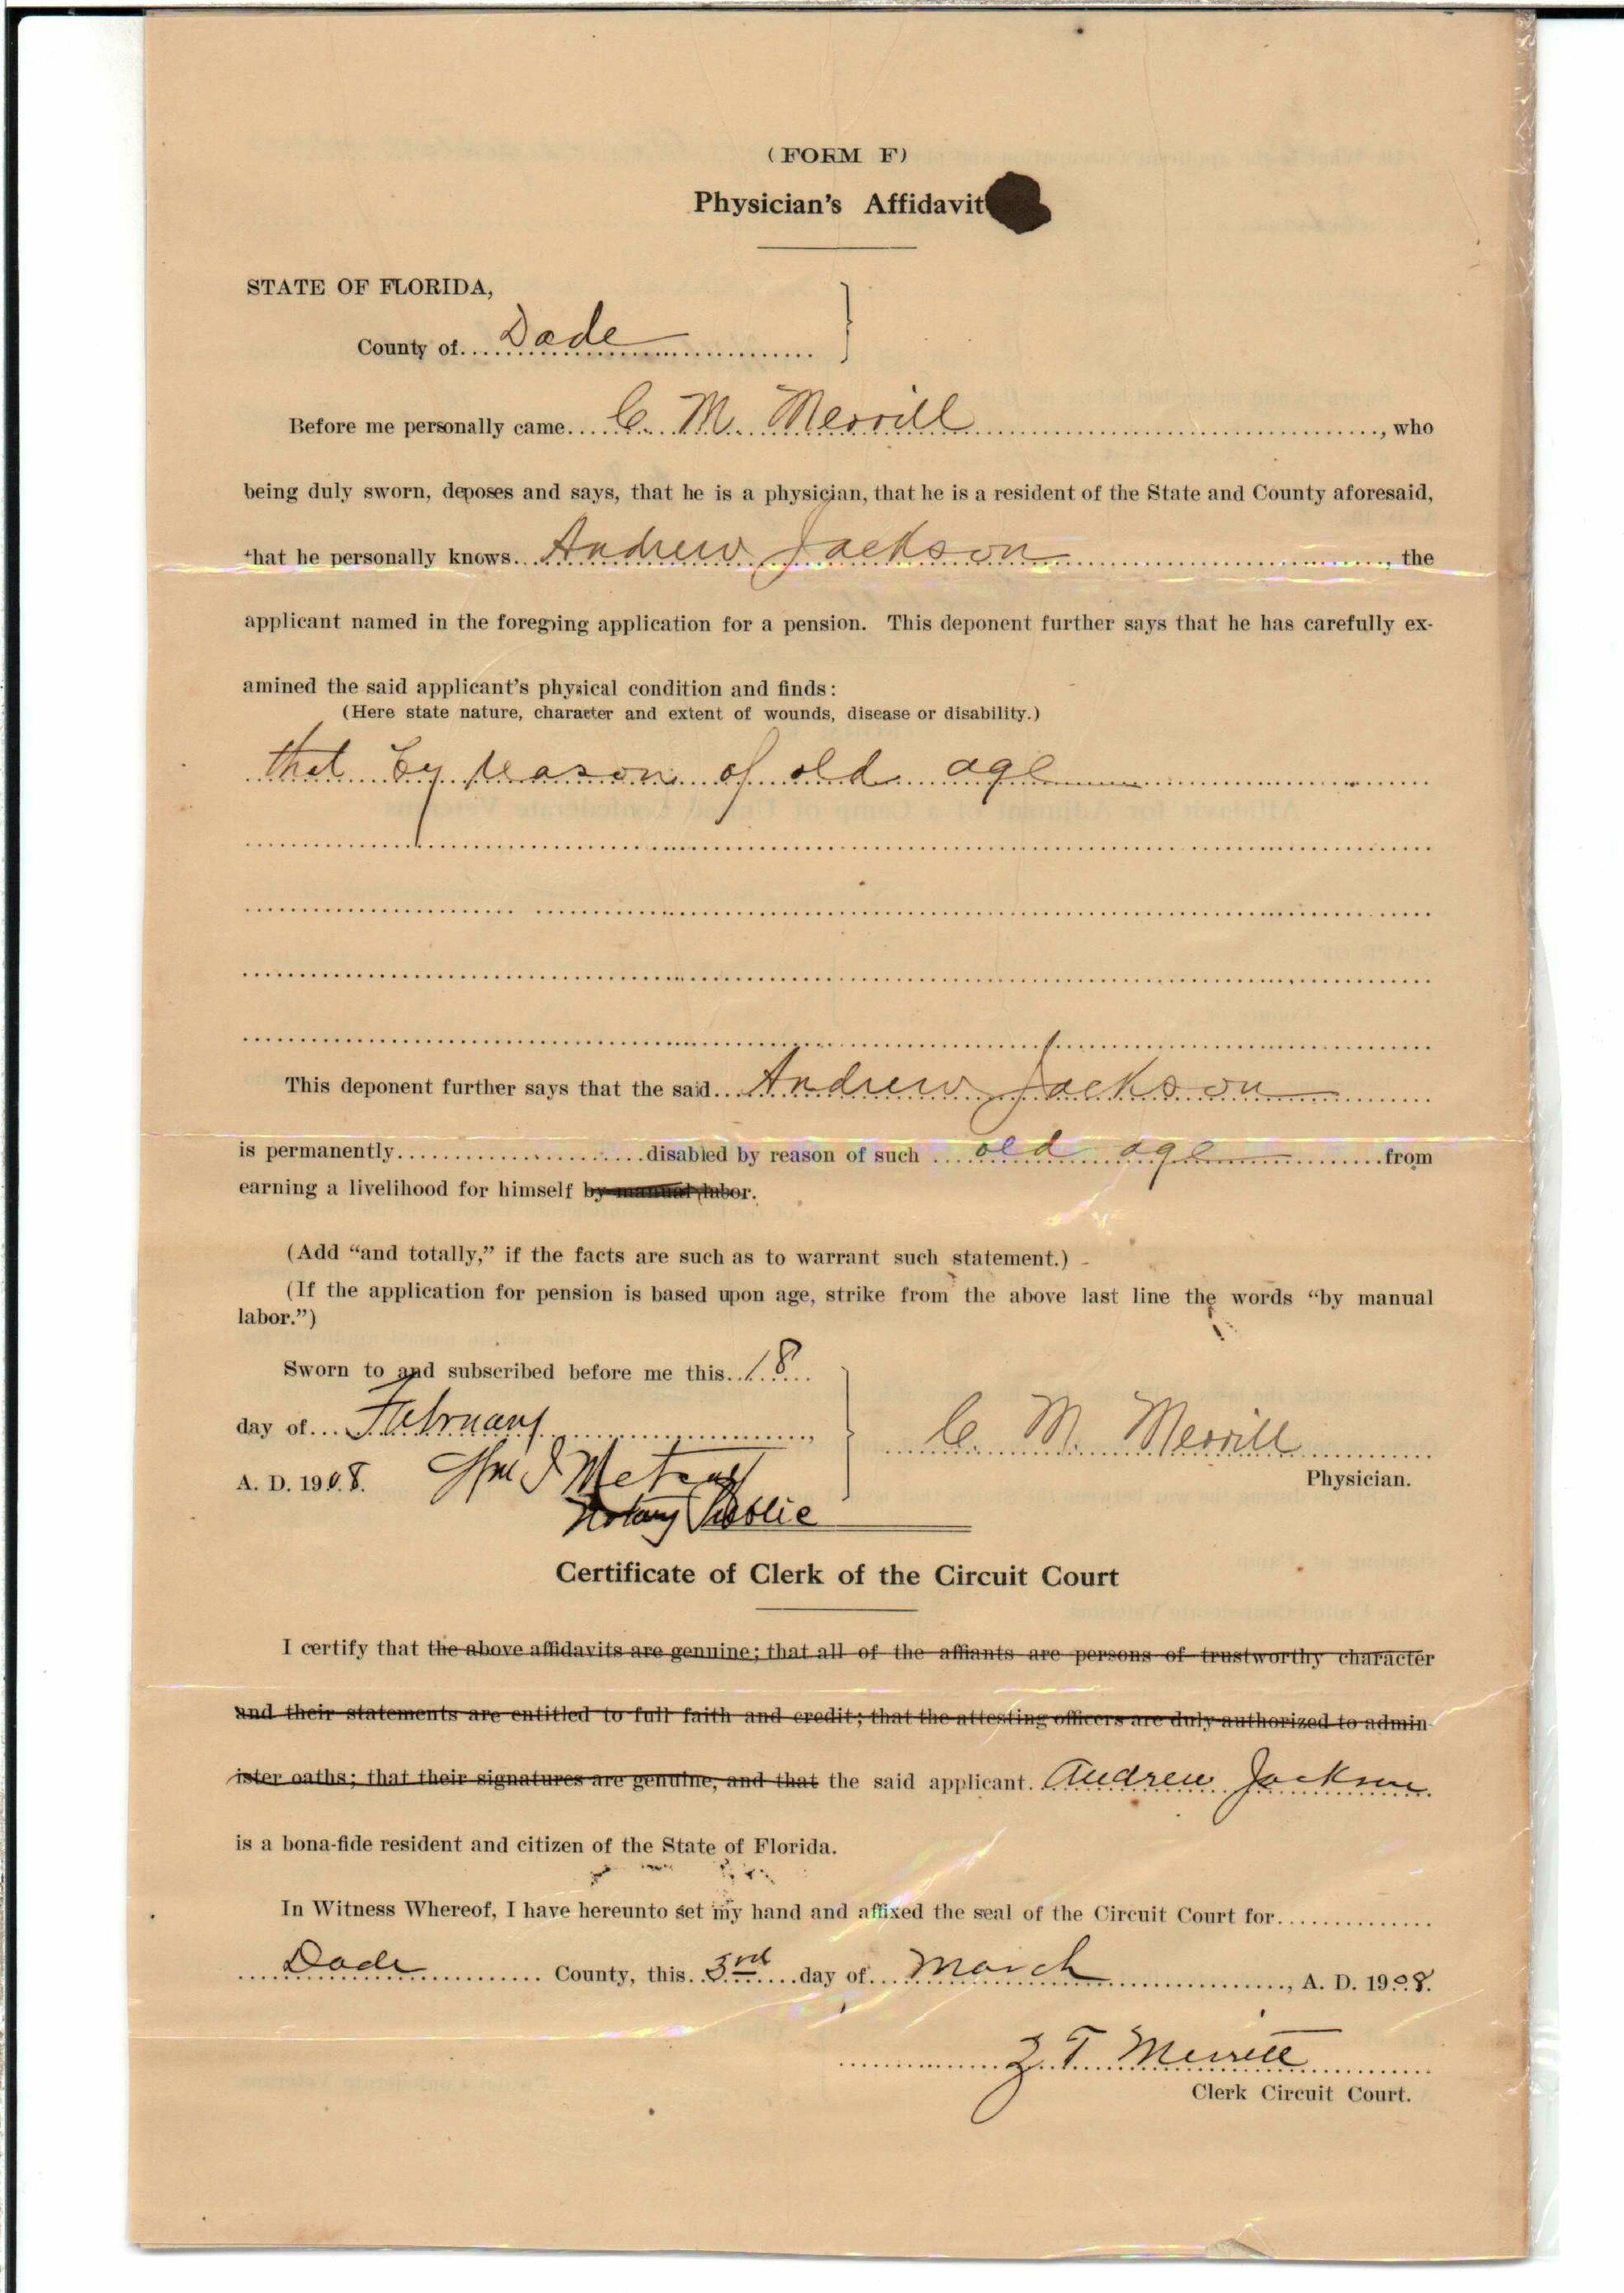 (FORM F)
Physician's Affidavit
STATE OF FLORIDA,
County of Dade
Before me personally came C. M. Merrill, who
being duly sworn, deposes and says, that he is a physician, that he is a resident of the State and County aforesaid,
that he personally knows Andrew Jackson, the
applicant named in the foregoing application for a pension. This deponent further says that he has carefully ex-
amined the said applicant's physical condition and finds:
(Here state nature, character and extent of wounds, disease or disability.)
that by reason of old age
This deponent further says that the said Andrew Jackson
is permanently disabled by reason of such old age from
earning a livelihood for himself by manual labor.
(Add "and totally," if the facts are such as to warrant such statement.)
(If the application for pension is based upon age, strike from the above last line the words "by manual
labor.")
Sworn to and subscribed before me this 18
day of February,
A. D. 1908.
Wm I Metcalf
Notary Public
C. M. Merrill
Physician.
Certificate of Clerk of the Circuit Court
I certify that the above affidavits are genuine; that all of the affiants are persons of trustworthy character
and their statements are entitled to full faith and credit; that the attesting officers are duly authorized to admin-
ister oaths; that their signatures are genuine, and that the said applicant Andrew Jackson
is a bona-fide resident and citizen of the State of Florida.
In Witness Whereof, I have hereunto set my hand and affixed the seal of the Circuit Court for
Dade County, this 3rd day of March, A. D. 1908.
Z. T. Merritt
Clerk Circuit Court.